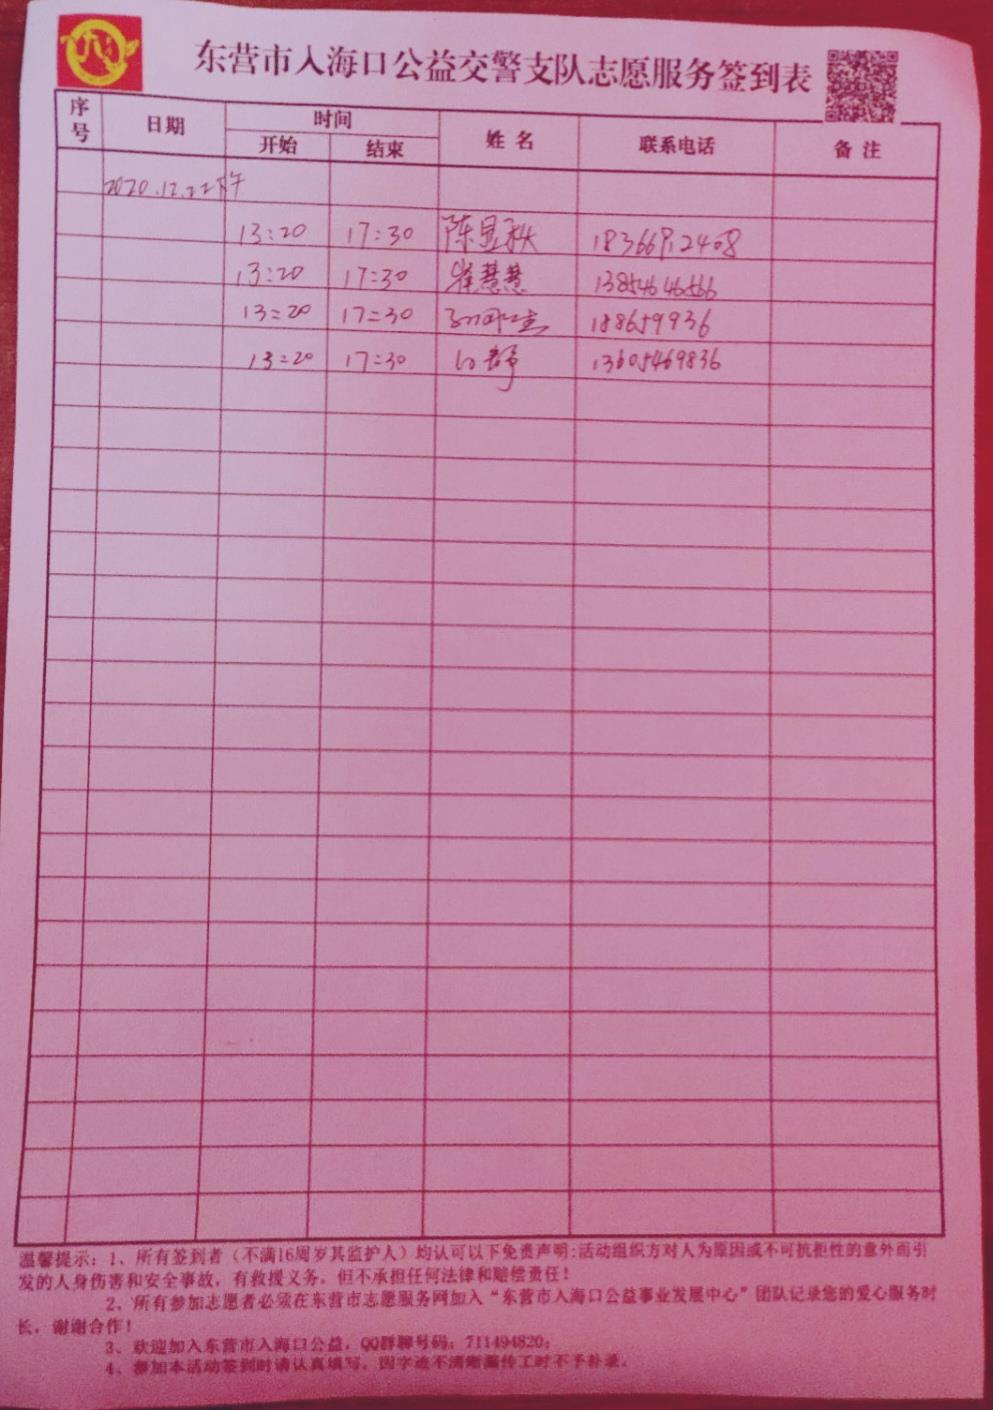 东营市入海口公益交警支队志愿服务签到表
序号 日期 时间 姓名 联系电话 备注
开始 结束
2020.12.22下午
13:20 17:30 陈显秋 18366912408
13:20 17:30 崔慧慧 13854646566
13:20 17:30 188659936
13:20 17:30 13605469836
温馨提示：1、所有签到者（不满16周岁其监护人）均认可以下免责声明:活动组织方对人为原因或不可抗拒性的意外而引
发的人身伤害和安全事故，有救援义务，但不承担任何法律和赔偿责任！
2、所有参加志愿者必须在东营市志愿服务网加入“东营市入海口公益事业发展中心”团队记录您的爱心服务时
长，谢谢合作！
3、欢迎加入东营市入海口公益，QQ群聊号码：711494820；
4、参加本活动签到时请认真填写，因字迹不清晰漏传工时不予补录。